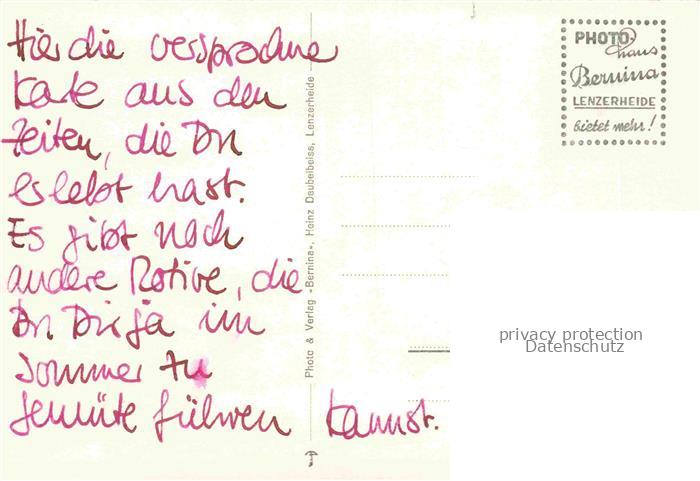 Hier die versprochne
Karte aus den
Zeiten, die Du
erlebt hast.
Es gibt noch
andere Motive, die
Du Dir ja im
Sommer zu
Gemüte führen kannst.
Photo & Verlag «Bernina», Heinz Daubelbeiss, Lenzerheide
PHOTO
haus
Bernina
LENZERHEIDE
bietet mehr!
privacy protection
Datenschutz